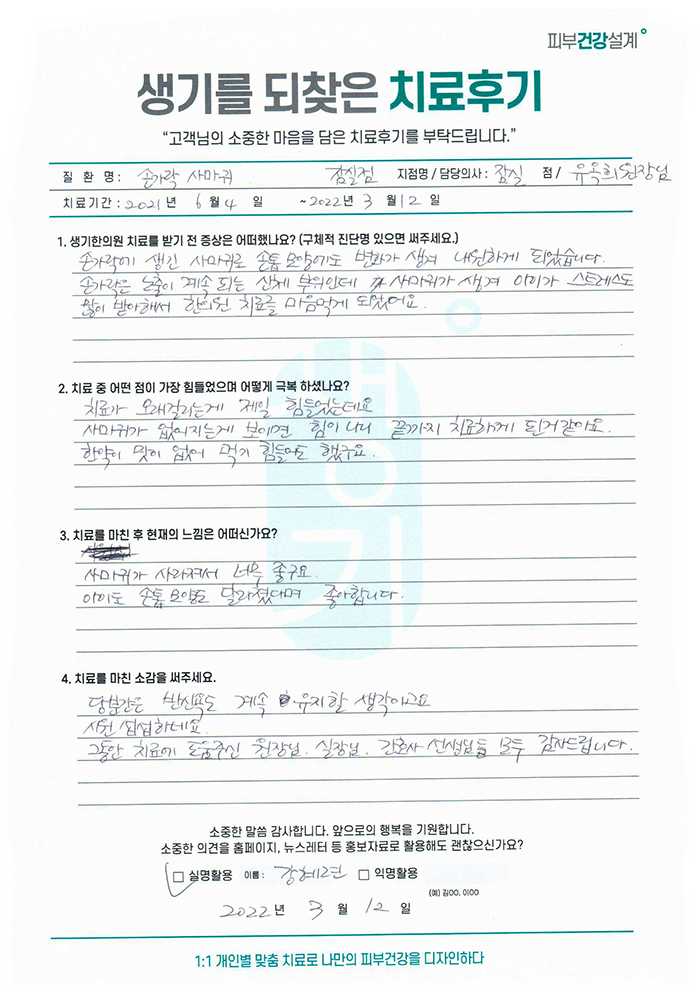 피부건강설계
생기를 되찾은 치료후기
“고객님의 소중한 마음을 담은 치료후기를 부탁드립니다.”
질 환 명 : 손가락 사마귀 잠실점 지점명 / 담당의사 : 잠실 점 / 유옥희원장님
치료기간 : 2021년 6월 4일 ~2022년 3월 12일
1. 생기한의원 치료를 받기 전 증상은 어떠했나요? (구체적 진단명 있으면 써주세요.)
손가락에 생긴 사마귀로 손톱모양에도 변화가 생겨 내원하게 되었습니다.
손가락은 노출이 계속 되는 신체 부위인데 사마귀가 생겨 아이가 스트레스도
많이 받아해서 한의원 치료를 마음먹게 되었어요.
2. 치료 중 어떤 점이 가장 힘들었으며 어떻게 극복 하셨나요?
치료가 오래걸리는게 제일 힘들었는데요
사마귀가 없어지는게 보이면 힘이 나니 끝까지 치료하게 된거같아요.
한약이 맛이 없어 먹기 힘들어도 했구요.
3. 치료를 마친 후 현재의 느낌은 어떠신가요?
사마귀가 사라져서 너무 좋구요.
아이도 손톱모양도 달라졌다며 좋아합니다.
4. 치료를 마친 소감을 써주세요.
당분간은 반신욕도 계속 유지할 생각이고요
시원 섭섭하네요.
그동안 치료에 도움주신 원장님, 실장님, 간호사 선생님들 모두 감사드립니다.
소중한 말씀 감사합니다. 앞으로의 행복을 기원합니다.
소중한 의견을 홈페이지, 뉴스레터 등 홍보자료로 활용해도 괜찮으신가요?
실명활용 이름 : 강혜련 익명활용
(예) 김OO, 이OO
2022년 3월 12일
1:1 개인별 맞춤 치료로 나만의 피부건강을 디자인하다
생기